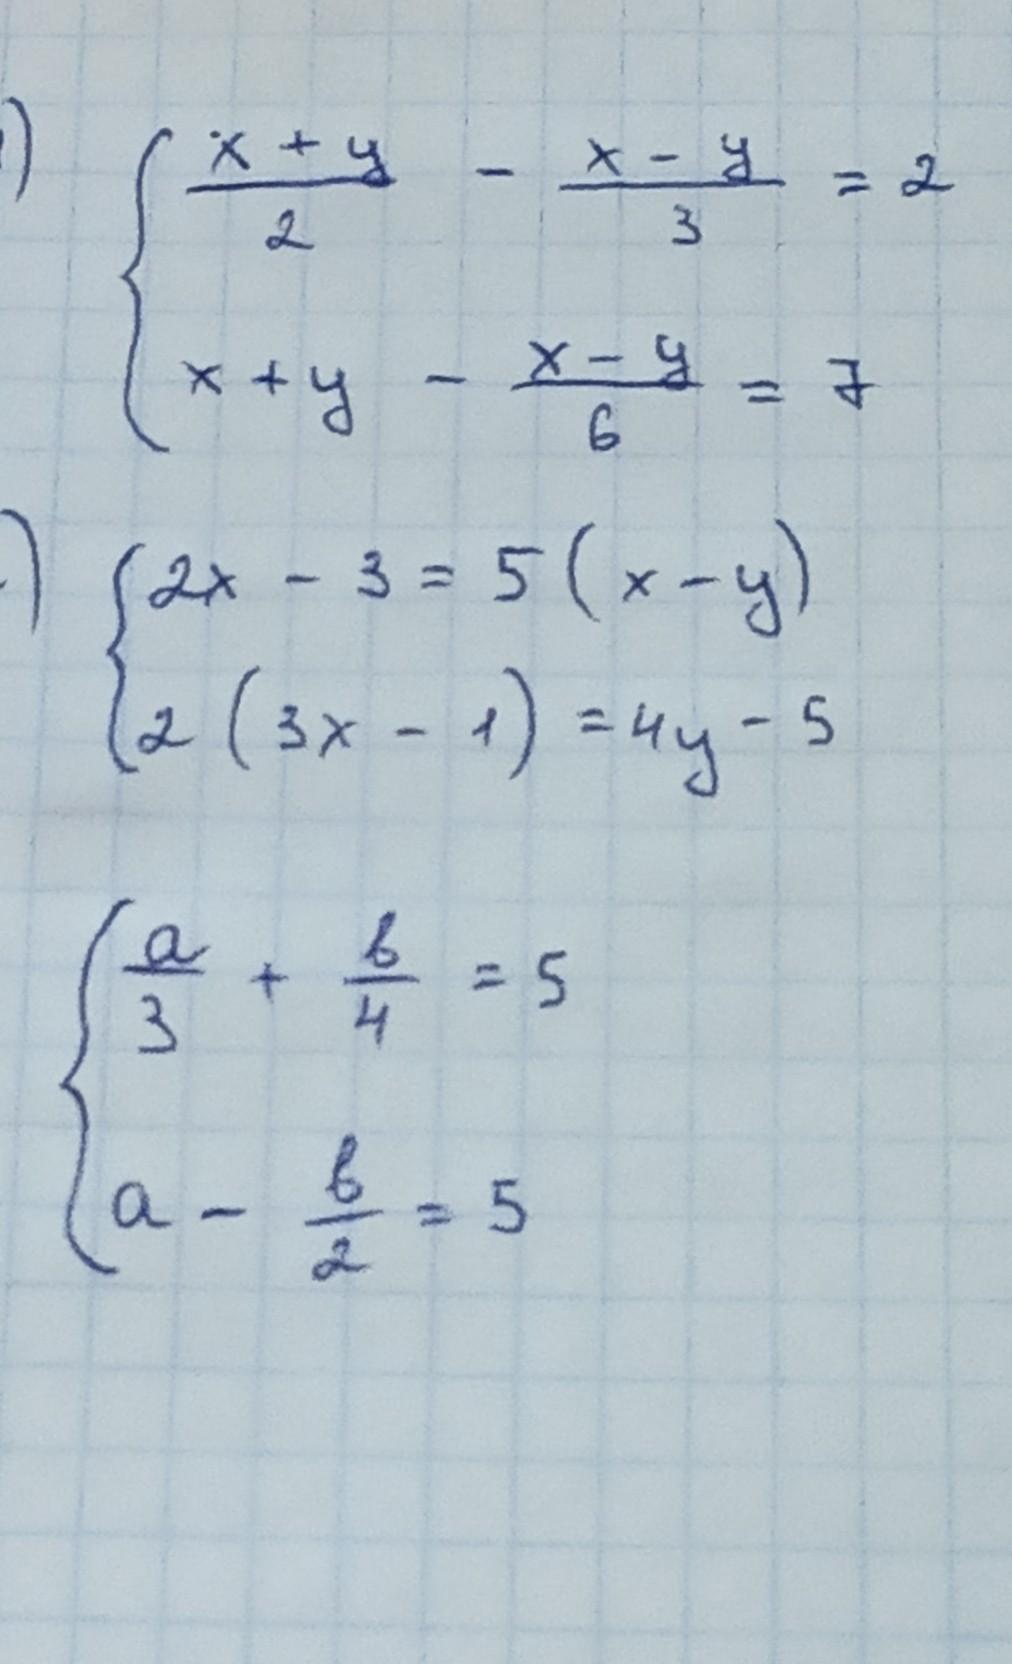 1) { (x + y)/2 - (x - y)/3 = 2
x + y - (x - y)/6 = 7
) { 2x - 3 = 5 (x - y)
2 (3x - 1) = 4y - 5
{ a/3 + b/4 = 5
a - b/2 = 5